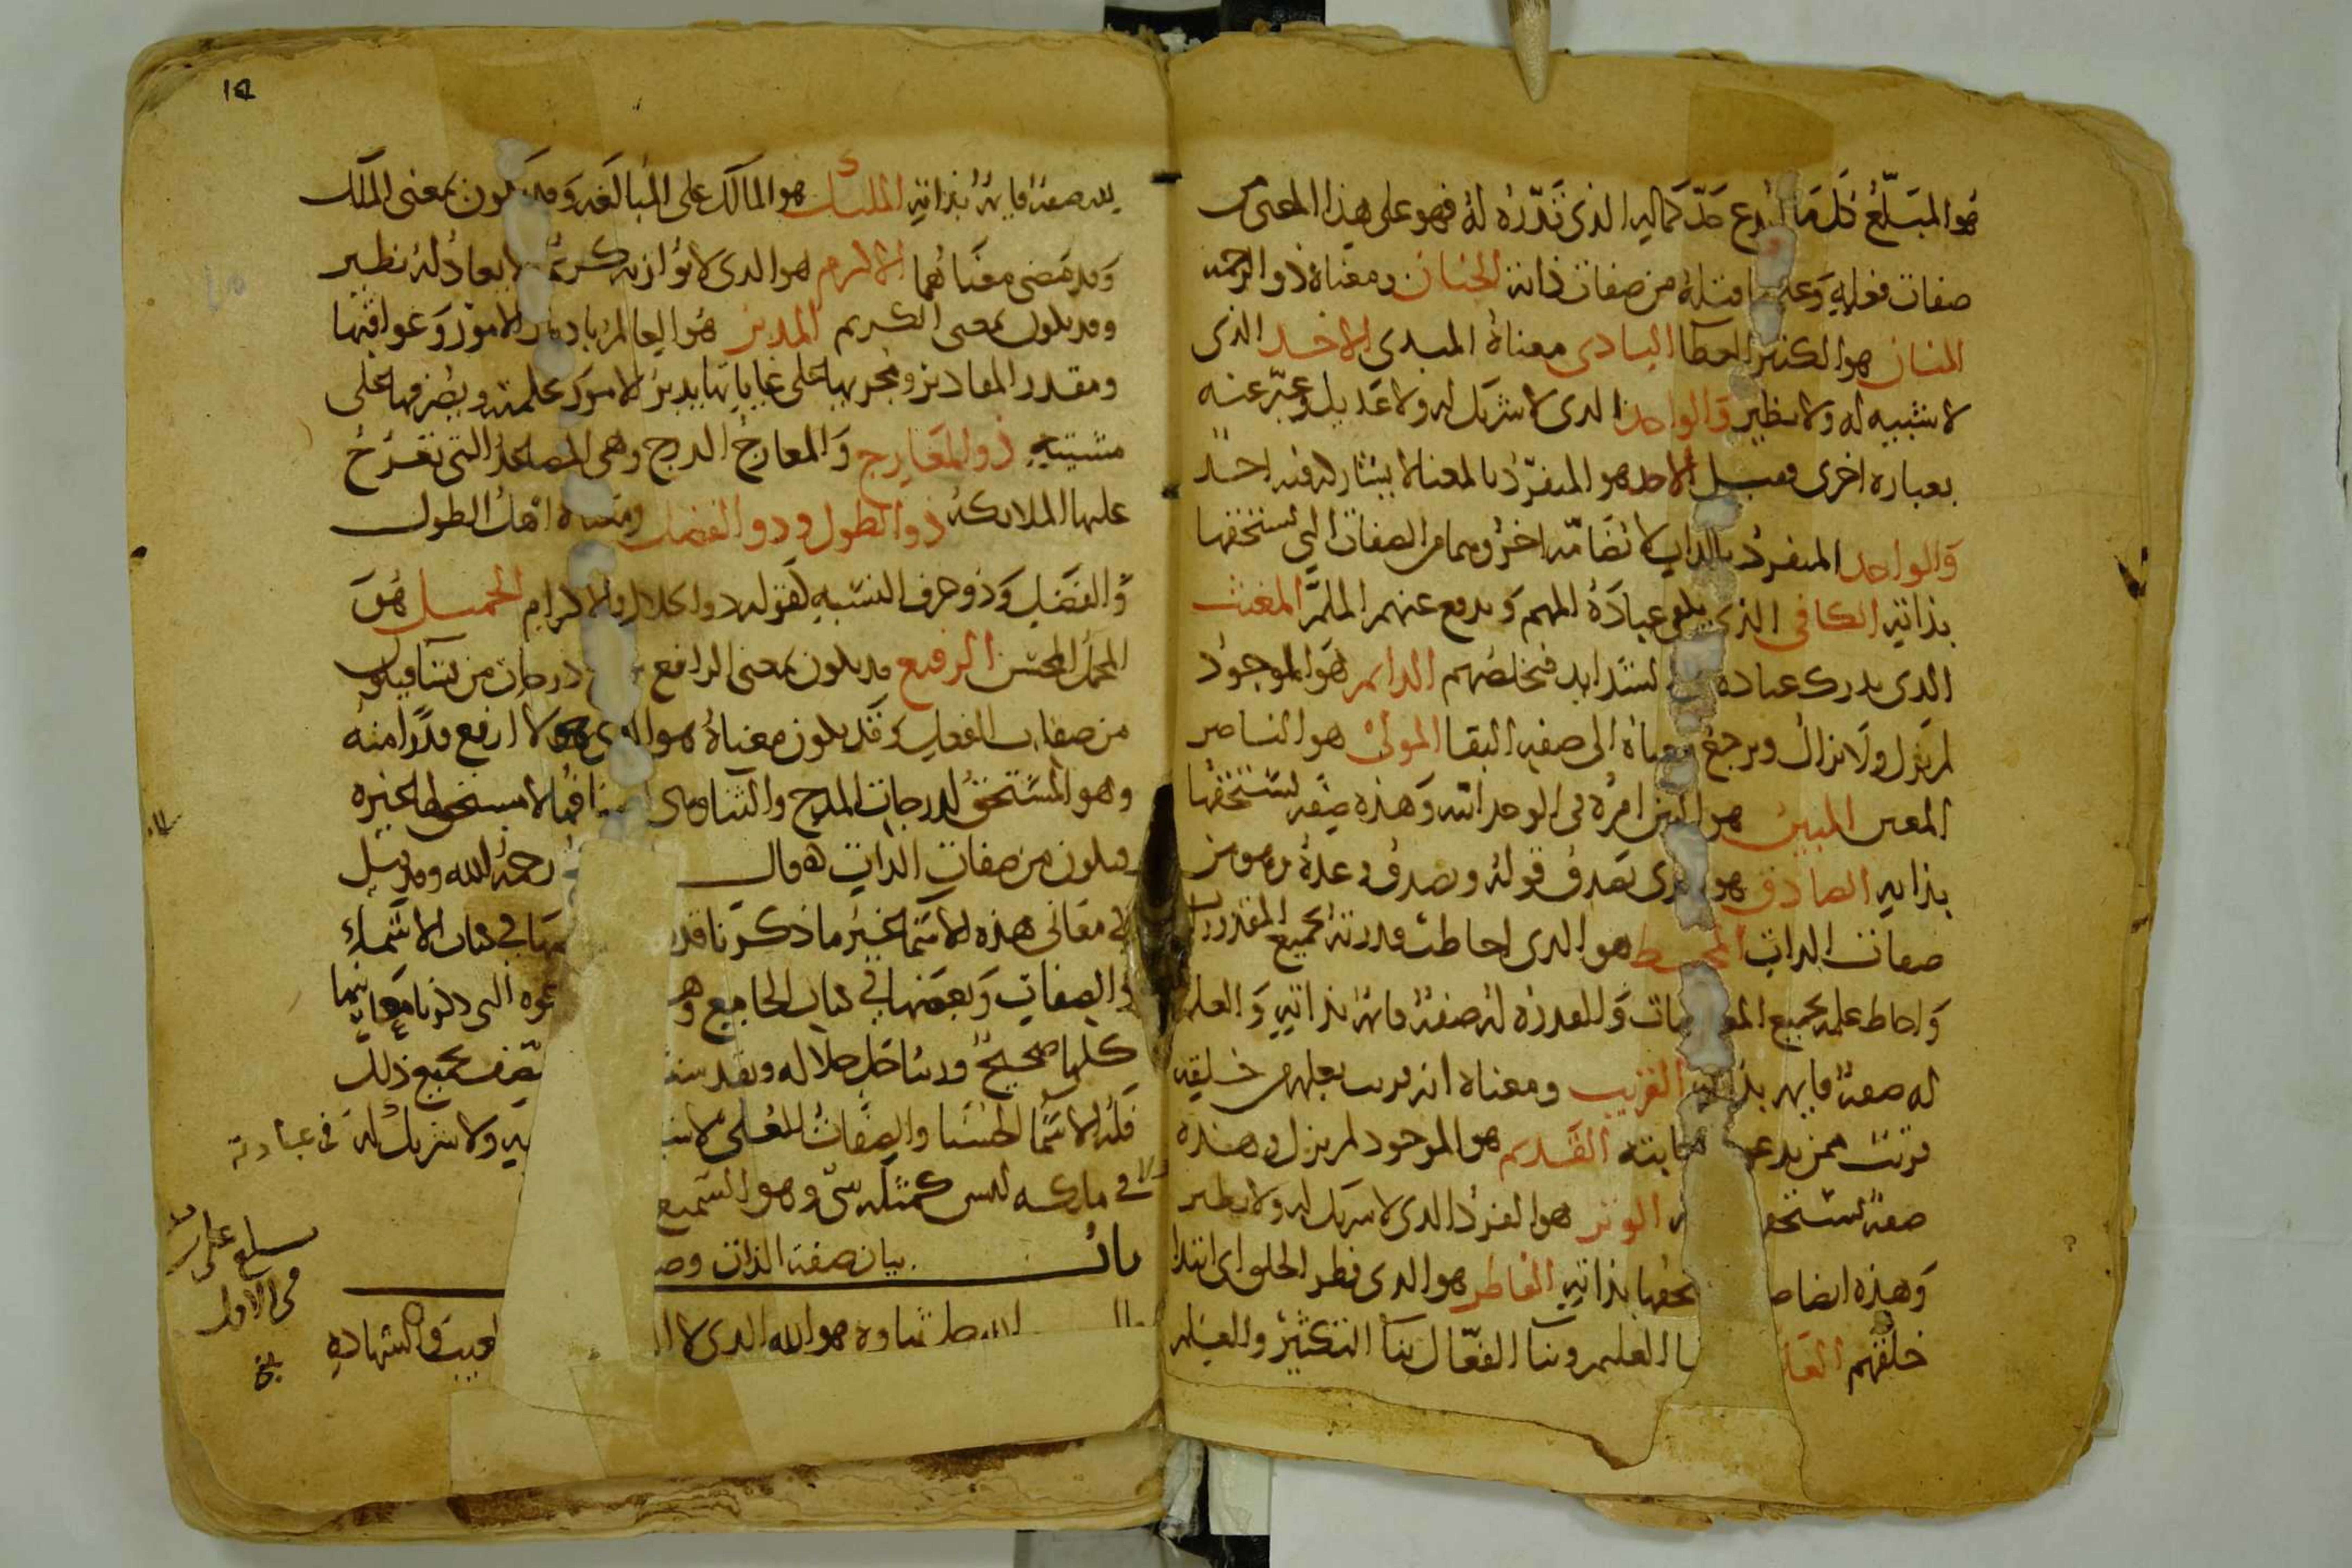 هو المبلغ كل ما أبدع حد كماله الذي قدره له فهو على هذا المعنى من
صفات فعله وعلى ما قبله من صفات ذاته الحنان ومعناه ذو الرحمة
المنان هو الكثير العطا البادى معناه المبدى الاحد الذي
لا شبيه له ولا نظير والواحد الذى لا شريك له ولا عديل وعبر عنه
بعباره اخرى فقيل الاحد هو المنفرد بالمعنا لا يشاركه فيه احد
والواحد المنفرد بالذات لا يضامه اخر وهما من الصفات التي يستحقها
بذاته الكافى الذي يكفى عباده المهم ويدفع عنهم الملم المغيث
الذى يدرك عباده الشدايد فيخلصهم الدايم هو الموجود
لم يزل ولا يزال ويرجع معناه الى صفه البقا المولى هو الناصر
المعين المبين هو البين امره في الوحدانيه وهذه صفه يستحقها
بذاته الصادق هو الذى يصدق قوله ويصدق وعده وهو من
صفات الذات المحيط هو الذى احاطت قدرته بجميع المقدورات
واحاط علمه بجميع المعلومات والقدره له صفة قايمة بذاته والعلم
له صفة قايمه بذاته القريب ومعناه انه قريب بعلمه من خليقته
قريب ممن يدعوه القديم هو الموجود لم يزل وهذه
صفه يستحقها الوتر هو الفرد الذى لا شريك له ولا نظير
وهذه ايضا بذاته الفاطر هو الذى فطر الخلق اى ابتدا
خلقهم العليم وبنا الفعال بنا التكثير والعلم

لله صفة قايمة بذاته المليك هو المالك على المبالغه وقد يكون بمعنى الملك
وقد مضى معناهما الاكرم هو الذى لا يوازيه كريم لا يعادله نظير
وقد يكون بمعنى الكريم المدبر هو العالم بادبار الامور وعواقبها
ومقدر المقادير ومجريها على غاياتها يدبر الامور بحكمته ويصرفها على
مشيته ذو المعارج والمعارج الدرج وهى المصاعد التي تعرج
عليها الملايكة ذو الطول وذو الفضل ومعناه اهل الطول
والفضل وذو حرف النسبه لقوله ذو الجلال والاكرام الجميل هو
المجمل المحسن الرفيع قد يكون بمعنى الرافع درجات من يشا فيكون
من صفات الفعل وقد يكون معناه هو الذى لا ارفع قدرا منه
وهو المستحق لدرجات المدح والثنا لا مستحق لها غيره
فيكون من صفات الذات قال رحمه الله وقد قيل
في معانى هذه الاسما غير ما ذكرنا في كتاب الاسماء
والصفات وبعضها في كتاب الجامع وهذه الوجوه التى ذكرنا معانيها
كلها صحيح وربنا جل جلاله وتقدست متصف بجميع ذلك
فله الاسما الحسنا والصفات العلى ولا شريك له في عبادته
ولا في ملكه ليس كمثله شى وهو السميع
باب بيان صفة الذات
قال الله جل ثناوه هو الله الذى لا الغيب والشهاده
في الاول
بلغ